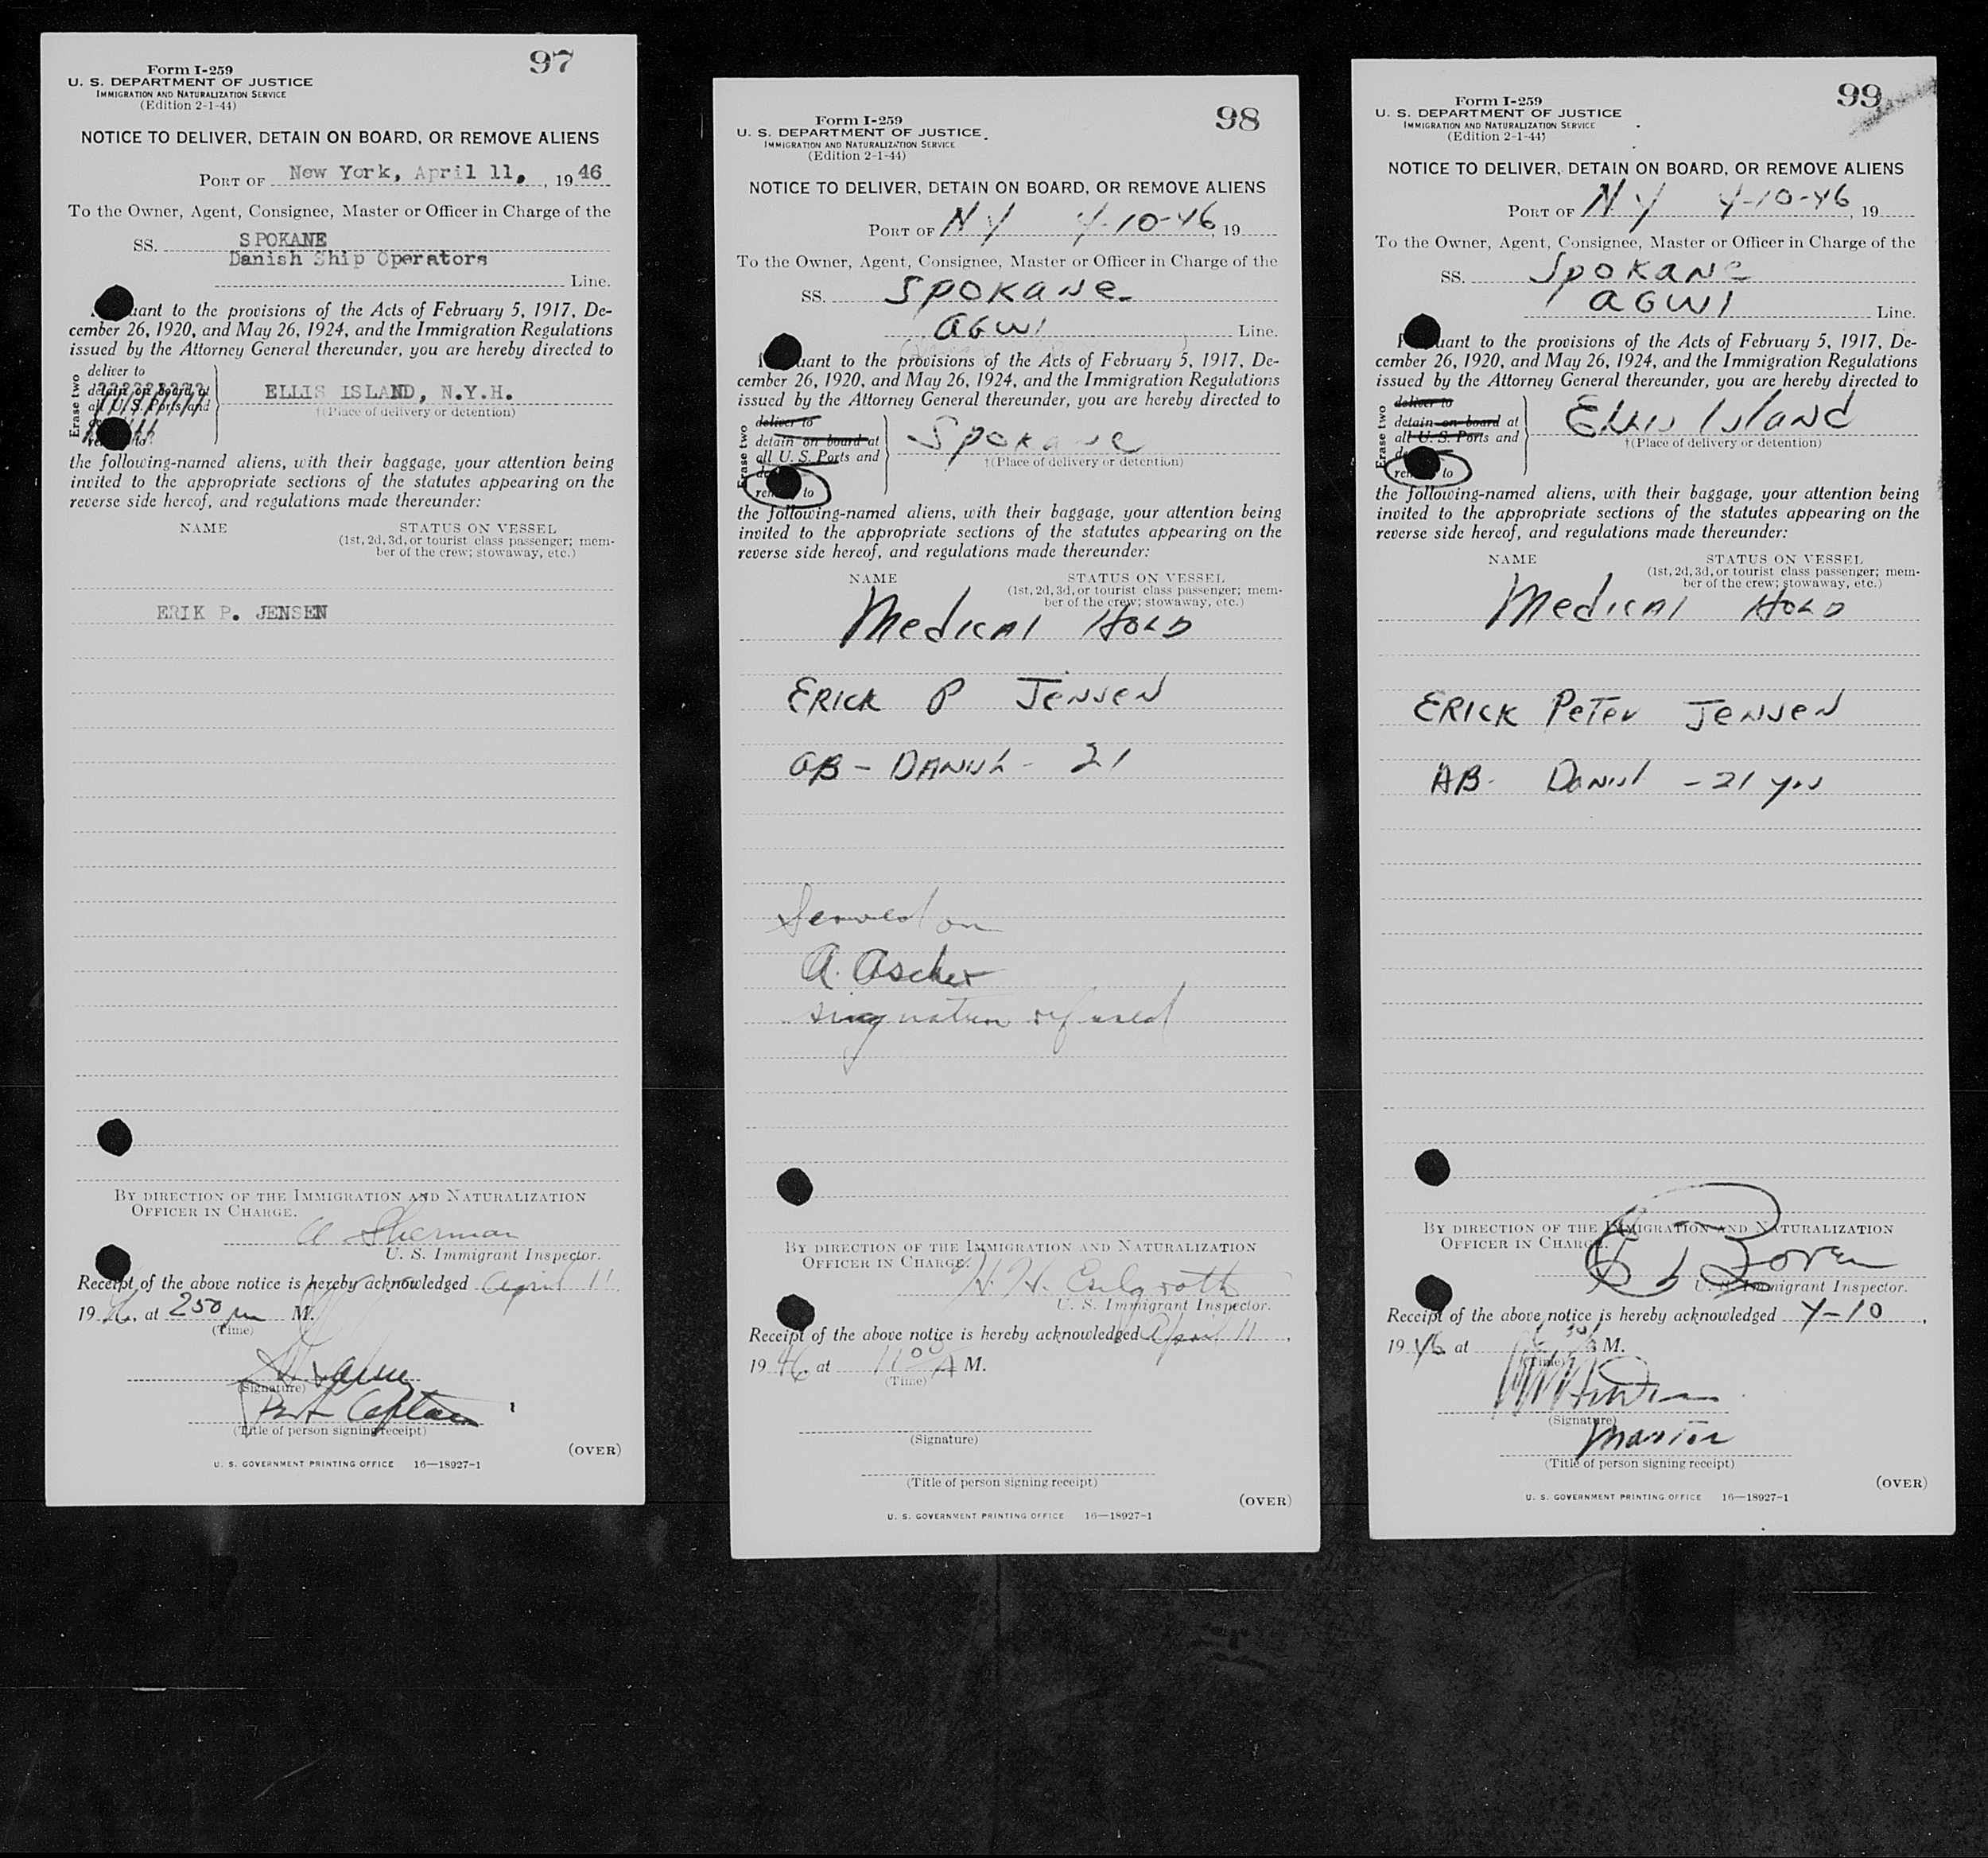 97
Form I-259
U. S. DEPARTMENT OF JUSTICE
IMMIGRATION AND NATURALIZATION SERVICE
(Edition 2-1-44)
NOTICE TO DELIVER, DETAIN ON BOARD, OR REMOVE ALIENS
PORT OF New York, April 11, , 19 46
To the Owner, Agent, Consignee, Master or Officer in Charge of the
SS. SPOKANE
Danish Ship Operators
Line.
uant to the provisions of the Acts of February 5, 1917, De-
cember 26, 1920, and May 26, 1924, and the Immigration Regulations
issued by the Attorney General thereunder, you are hereby directed to
Erase two
deliver to
detain on board at
all U. S. Ports and
to
ELLIS ISLAND, N.Y.H.
†(Place of delivery or detention)
the following-named aliens, with their baggage, your attention being
invited to the appropriate sections of the statutes appearing on the
reverse side hereof, and regulations made thereunder:
NAME STATUS ON VESSEL
(1st, 2d, 3d, or tourist class passenger; mem-
ber of the crew; stowaway, etc.)
ERIK P. JENSEN
BY DIRECTION OF THE IMMIGRATION AND NATURALIZATION
OFFICER IN CHARGE.
A Sherman
U. S. Immigrant Inspector.
Receipt of the above notice is hereby acknowledged April 11
19 46. at 250 pm M.
(Time)
(Signature)
Port Captain
(Title of person signing receipt)
(OVER)
U. S. GOVERNMENT PRINTING OFFICE 16—18927-1
98
Form I-259
U. S. DEPARTMENT OF JUSTICE
IMMIGRATION AND NATURALIZATION SERVICE
(Edition 2-1-44)
NOTICE TO DELIVER, DETAIN ON BOARD, OR REMOVE ALIENS
PORT OF NY 4-10-46, 19
To the Owner, Agent, Consignee, Master or Officer in Charge of the
SS. Spokane
AGWI Line.
uant to the provisions of the Acts of February 5, 1917, De-
cember 26, 1920, and May 26, 1924, and the Immigration Regulations
issued by the Attorney General thereunder, you are hereby directed to
Erase two
deliver to
detain on board at
all U. S. Ports and
to
Spokane
†(Place of delivery or detention)
the following-named aliens, with their baggage, your attention being
invited to the appropriate sections of the statutes appearing on the
reverse side hereof, and regulations made thereunder:
NAME STATUS ON VESSEL
(1st, 2d, 3d, or tourist class passenger; mem-
ber of the crew; stowaway, etc.)
Medical Hold
Erick P Jensen
AB - Danish - 21
Served on
A. Ascher
singnature refused
BY DIRECTION OF THE IMMIGRATION AND NATURALIZATION
OFFICER IN CHARGE.
H. H.
U. S. Immigrant Inspector.
Receipt of the above notice is hereby acknowledged April 11 ,
19 46 at 11 00 A M.
(Time)
(Signature)
(Title of person signing receipt)
(OVER)
U. S. GOVERNMENT PRINTING OFFICE 16—18927-1
99
Form I-259
U. S. DEPARTMENT OF JUSTICE
IMMIGRATION AND NATURALIZATION SERVICE
(Edition 2-1-44)
NOTICE TO DELIVER, DETAIN ON BOARD, OR REMOVE ALIENS
PORT OF NY 4-10-46, 19
To the Owner, Agent, Consignee, Master or Officer in Charge of the
SS. Spokane
AGWI Line.
uant to the provisions of the Acts of February 5, 1917, De-
cember 26, 1920, and May 26, 1924, and the Immigration Regulations
issued by the Attorney General thereunder, you are hereby directed to
Erase two
deliver to
detain on board at
all U. S. Ports and
to
Ellis Island
†(Place of delivery or detention)
the following-named aliens, with their baggage, your attention being
invited to the appropriate sections of the statutes appearing on the
reverse side hereof, and regulations made thereunder:
NAME STATUS ON VESSEL
(1st, 2d, 3d, or tourist class passenger; mem-
ber of the crew; stowaway, etc.)
Medical Hold
Erick Peter Jensen
AB- Danish - 21 yrs
BY DIRECTION OF THE IMMIGRATION AND NATURALIZATION
OFFICER IN CHARGE.
U. S. Immigrant Inspector.
Receipt of the above notice is hereby acknowledged 4-10 ,
19 46 at M.
(Time)
(Signature)
Master
(Title of person signing receipt)
(OVER)
U. S. GOVERNMENT PRINTING OFFICE 16—18927-1